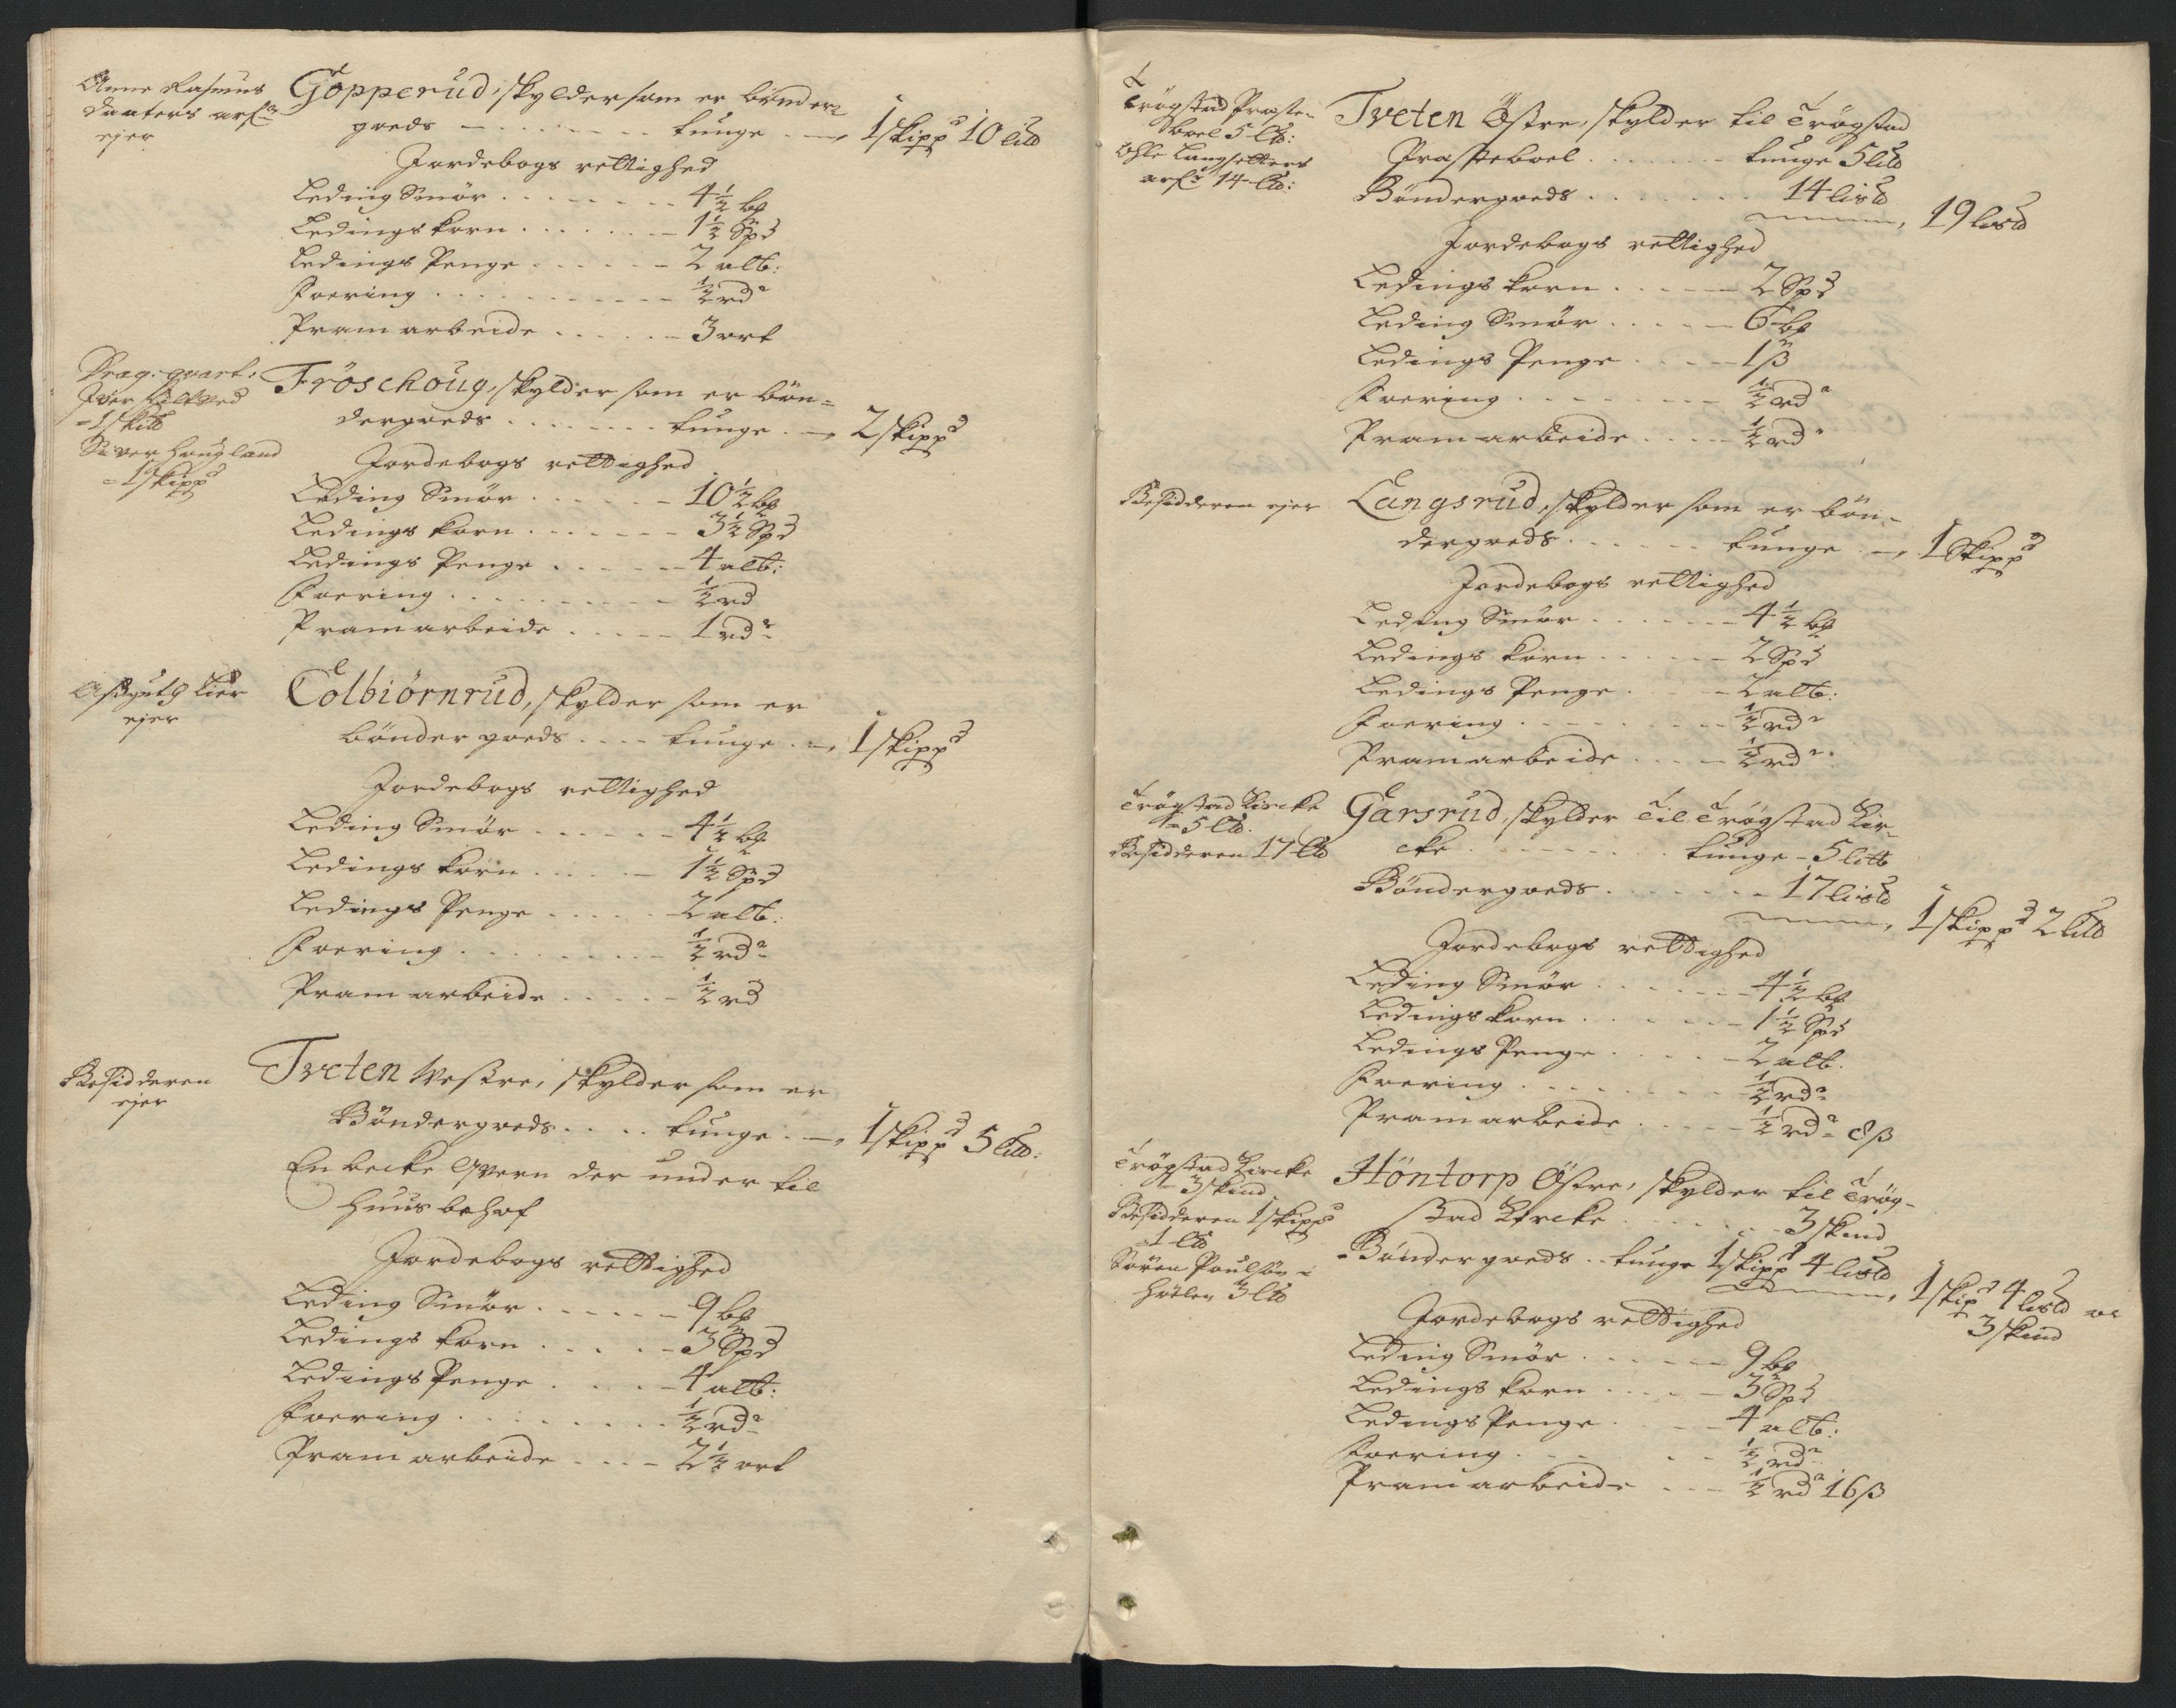 Anne Rasmus
daaters arf:
ejer
Göpperud, skylder som er bönder
goeds - . . . . . . . tunge . - 1 skippd 10 lild
Jordebogs rettighed
Leding Smör . . . . . . . 4½ bp
Ledings korn . . . . . . 1½ Spd
Ledings Penge . . . . . . 2 alb:
Foering . . . . . . . . . ½ rd
Pram arbeide . . . . . . 3 ort
Drag: qvart:
Iver
- 1 skild
Siver Hougland
- 1 skippd
Fröschoug, skylder som er bön-
dergoeds . . . . . . . tunge . - 2 skippd
Jordebogs rettighed
Leding Smör . . . . . . 10½ bp
Ledings korn . . . . . . 3½ Spd
Ledings Penge . . . . . 4 alb:
Foering . . . . . . . . . ½ rd
Pramarbeide . . . . . 1 rd
Lier
ejer
Colbiörnrud, skylder som er
bönder goeds . . . . tunge . - 1 skippd
Jordebogs rettighed
Leding Smör . . . . . . 4½ bp
Ledings korn . . . . . 1½ Spd
Ledings Penge . . . . . 2 alb:
Foering . . . . . . . . ½ rd
Pram arbeide . . . . . ½ rd
Besidderen
ejer
Tveten Westre, skylder som er
Böndergoeds . . . . tunge . - 1 skippd 5 lild:
En becke Qvern der under til
huus behof
Jordebogs rettighed
Leding Smör . . . . . 9 bp
Ledings korn . . . . . 3 Spd
Ledings Penge . . . . 4 alb:
Foering . . . . . . . . ½ rd
Pram arbeide . . . . 2½ ort
Trögstad Præste-
boel 5 ld:
Ohle Langsetters
arf: 14 ld:
Tveten Östre, skylder til Trögstad
Præsteboel . . . . . . tunge 5 lild
Böndergoeds . . . . . . . 14 lisld
19 lisld
Jordebogs rettighed
Ledings korn . . . . . 2 Spd
Leding Smör . . . . . 6 bp
Ledings Penge . . . . 1 ß
Foering . . . . . . . . ½ rd
Pramarbeide . . . . . ½ rd
Besidderen ejer
Langsrud, skylder som er bön-
dergoeds . . . . . . tunge . - 1 Skippd
Jordebogs rettighed
Leding Smör . . . . . . 4½ bp
Ledings korn . . . . . . 2 Spd
Ledings Penge . . . . . 2 alb:
Foering . . . . . . . . ½ rd
Pramarbeide . . . . . ½ rd
Trögstad Kircke
- 5 ld.
Besidderen 17 ld
Garsrud, skylder Til Trögstad Kir-
cke . . . . . . . . tunge - 5 lild
Böndergoeds . . . . . . . 17 lisld
1 skippd 2 lild
Jordebogs rettighed
Leding Smör . . . . . . 4½ bp
Ledings korn . . . . . . 1½ Spd
Ledings Penge . . . . . 2 alb.
Foering . . . . . . . . ½ rd
Pramarbeide . . . . . ½ rd 8 ß
Trögstad Kircke
- 3 skind
Besidderen 1 skippd
- 1 ld
Sören Poulsön i
Hölen 3 ld
Höntorp Östre, skylder til Trög-
stad Kircke . . . . . . . 3 skind
Böndergoeds . . tunge 1 skippd 4 lisld
1 skipd 4 lisld oc
3 skind
Jordebogs rettighed
Leding Smör . . . . . . 9 bp
Ledings korn . . . . . 3 Spd
Ledings Penge . . . . 4 alb:
Foering . . . . . . . ½ rd
Pramarbeide . . . ½ rd 16 ß